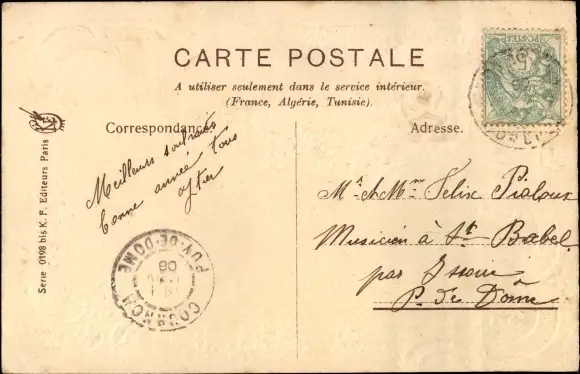 CARTE POSTALE
A utiliser seulement dans le service intérieur.
(France, Algérie, Tunisie).
Correspondance.
Adresse.
Meilleurs souhaits
bonne année tous
Mr et Mme Felix Pialoux
Musicien à St Babel
par Issoire
P. de Dôme
COURNON
PUY-DE-DOME
06
POSTES
Serie 0198 bis K. F. Editeurs Paris